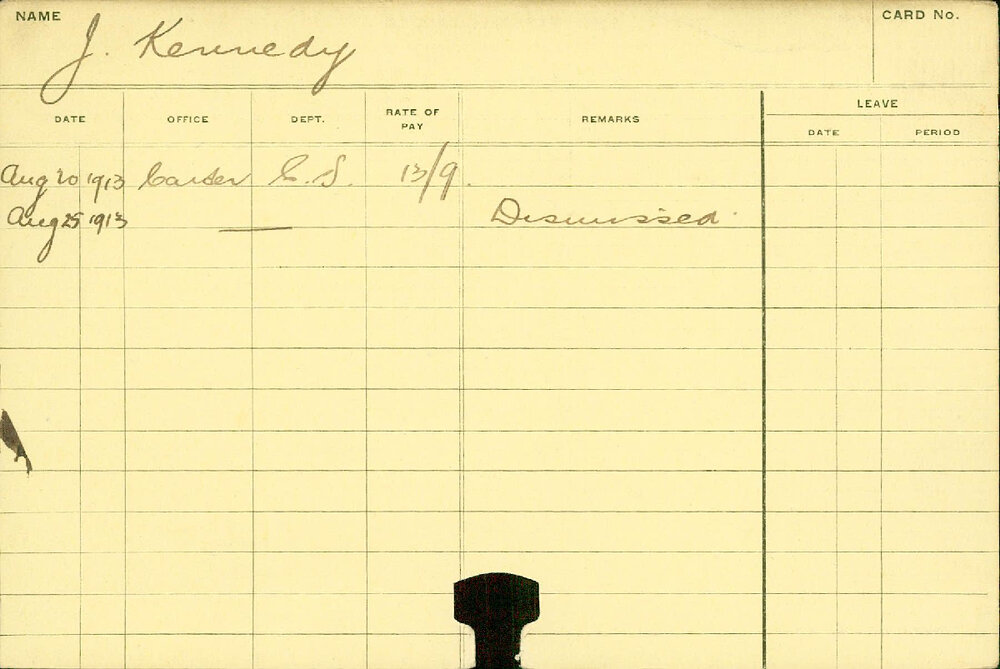 NAME J. Kennedy CARD No.
DATE OFFICE DEPT. RATE OF PAY REMARKS LEAVE
DATE PERIOD
Aug 20 1913 Carter C.S. 13/9.
Aug 25 1913 — Dismissed.